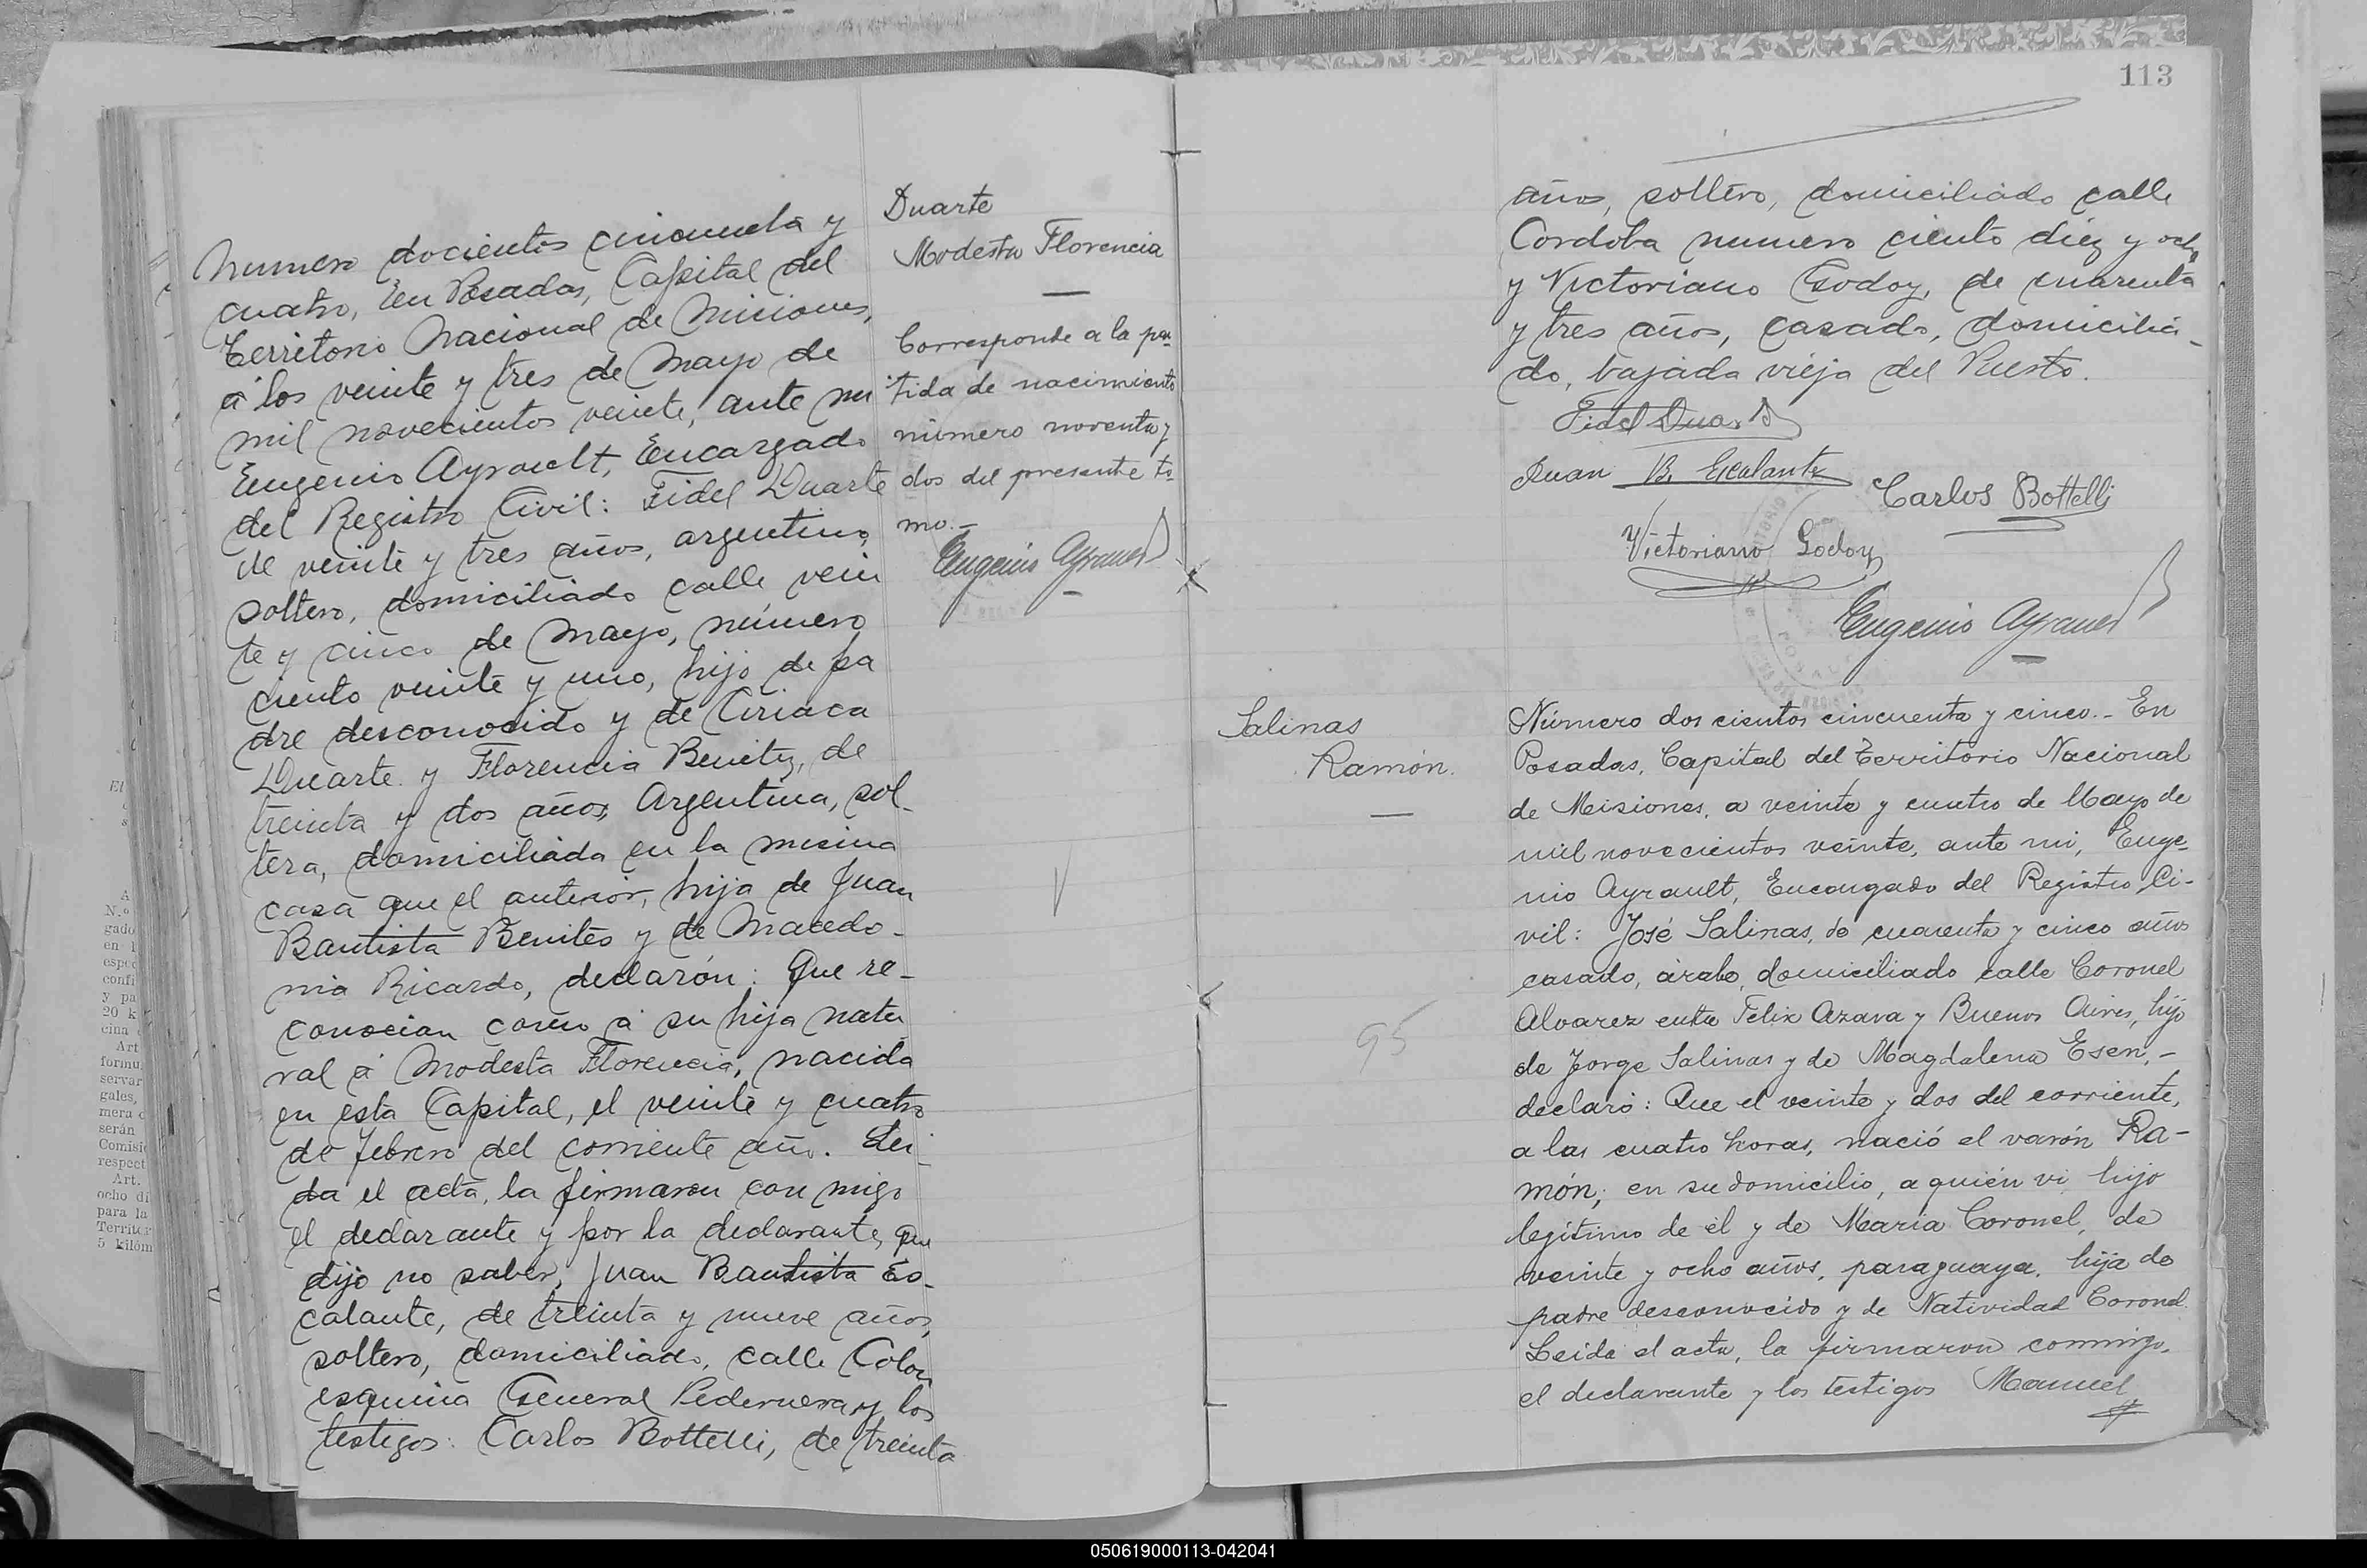 Numero docientos cincuenta y
cuatro, En Posadas, Capital del
Territorio Nacional de Misiones,
á los veinte y tres de Mayo de
mil novecientos veinte, ante mi
Eugenio Ayrault, Encargado
del Registro Civil: Fidel Duarte
de veinte y tres años, argentino,
soltero, domiciliado calle vein
te y cinco de Mayo, número
ciento veinte y uno, hijo de pa
dre desconocido y de Ciriaca
Duarte y Florencia Benitez, de
treinta y dos años, Argentina, sol-
tera, domiciliada en la misma
casa que el anterior, hija de Juan
Bautista Benites y de Macedo-
nia Ricardo, declarón: Que re-
conocian como á su hija natu
ral á Modesta Florencia, nacida
en esta Capital, el veinte y cuatro
de febrero del corriente año. Lei-
da el acta, la firmaron con migo
el declarante y por la declarante, que
dijo no saber, Juan Bautista Es-
calante, de treinta y nueve años,
soltero, domiciliado, calle Colon
esquina General Pedernera y los
testigos: Carlos Bottelli, de treinta
Duarte
Modesta Florencia
Corresponde a la par-
tida de nacimiento
número noventa y
dos del presente to-
mo.-
Eugenio Ayrault
El
A
N.o
gado
en
espec
confi
y pa
20 k
cina
Art
formu
servar
gales,
mera
serán
Comisi
respect
Art.
ocho dí
para la
Territor
5 kilóm
113
años, soltero, domiciliado calle
Cordoba numero ciento diez y ocho
y Victoriano Godoy, de cuarenta
y tres años, casado, domicilia-
do, bajada vieja del Puerto.
Fidel Duarte
Juan B. Escalante
Carlos Bottelli
Victoriano Godoy
Eugenio Ayrault
Salinas
Ramón.
95
Número dos cientos cincuenta y cinco.- En
Posadas, Capital del Territorio Nacional
de Misiones, a veinte y cuatro de Mayo de
mil novecientos veinte, ante mi, Euge-
nio Ayrault, Encargado del Registro Ci-
vil: José Salinas, de cuarenta y cinco años
casado, árabe, domiciliado calle Coronel
Alvarez entre Felix Azara y Buenos Aires, hijo
de Jorge Salinas y de Magdalena Esen,-
declaró: Que el veinte y dos del corriente,
a las cuatro horas, nació el varón Ra-
món; en su domicilio, a quién vi, hijo
legítimo de él y de María Coronel, de
veinte y ocho años, paraguaya, hija de
padre desconocido y de Natividad Coronel.
Leida el acta, la firmaron conmigo,
el declarante y los testigos Manuel
050619000113-042041